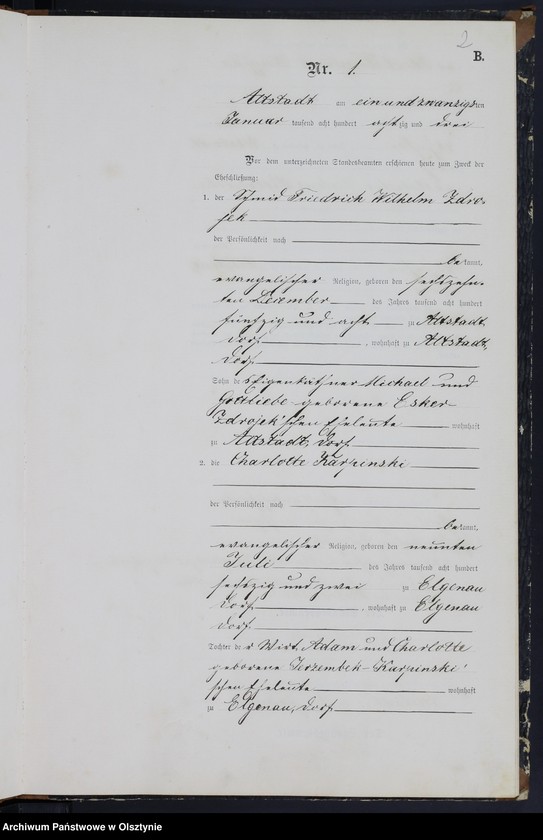 2
B.
Nr. 1.
Altstadt am einundzwanzigsten
Januar tausend acht hundert achtzig und drei
Vor dem unterzeichneten Standesbeamten erschienen heute zum Zweck der
Eheschließung:
1. der Schmid Friedrich Wilhelm Zdro-
jek
der Persönlichkeit nach
bekannt,
evangelischer Religion, geboren den sechszehn-
ten Dezember des Jahres tausend acht hundert
fünfzig und acht zu Altstadt
Dorf, wohnhaft zu Altstadt,
Dorf
Sohn des Eigenkäthner Michael und
Gottliebe geborene Esker-
Zdrojek'schen Eheleute wohnhaft
zu Altstadt, Dorf
2. die Charlotte Karpinski
der Persönlichkeit nach
bekannt,
evangelischer Religion, geboren den neunten
Juli des Jahres tausend acht hundert
sechszig und zwei zu Elgenau
Dorf, wohnhaft zu Elgenau
Dorf
Tochter der Wirt Adam und Charlotte
geborene Jerzembek-Karpinski'
schen Eheleute wohnhaft
zu Elgenau, Dorf
Archiwum Państwowe w Olsztynie